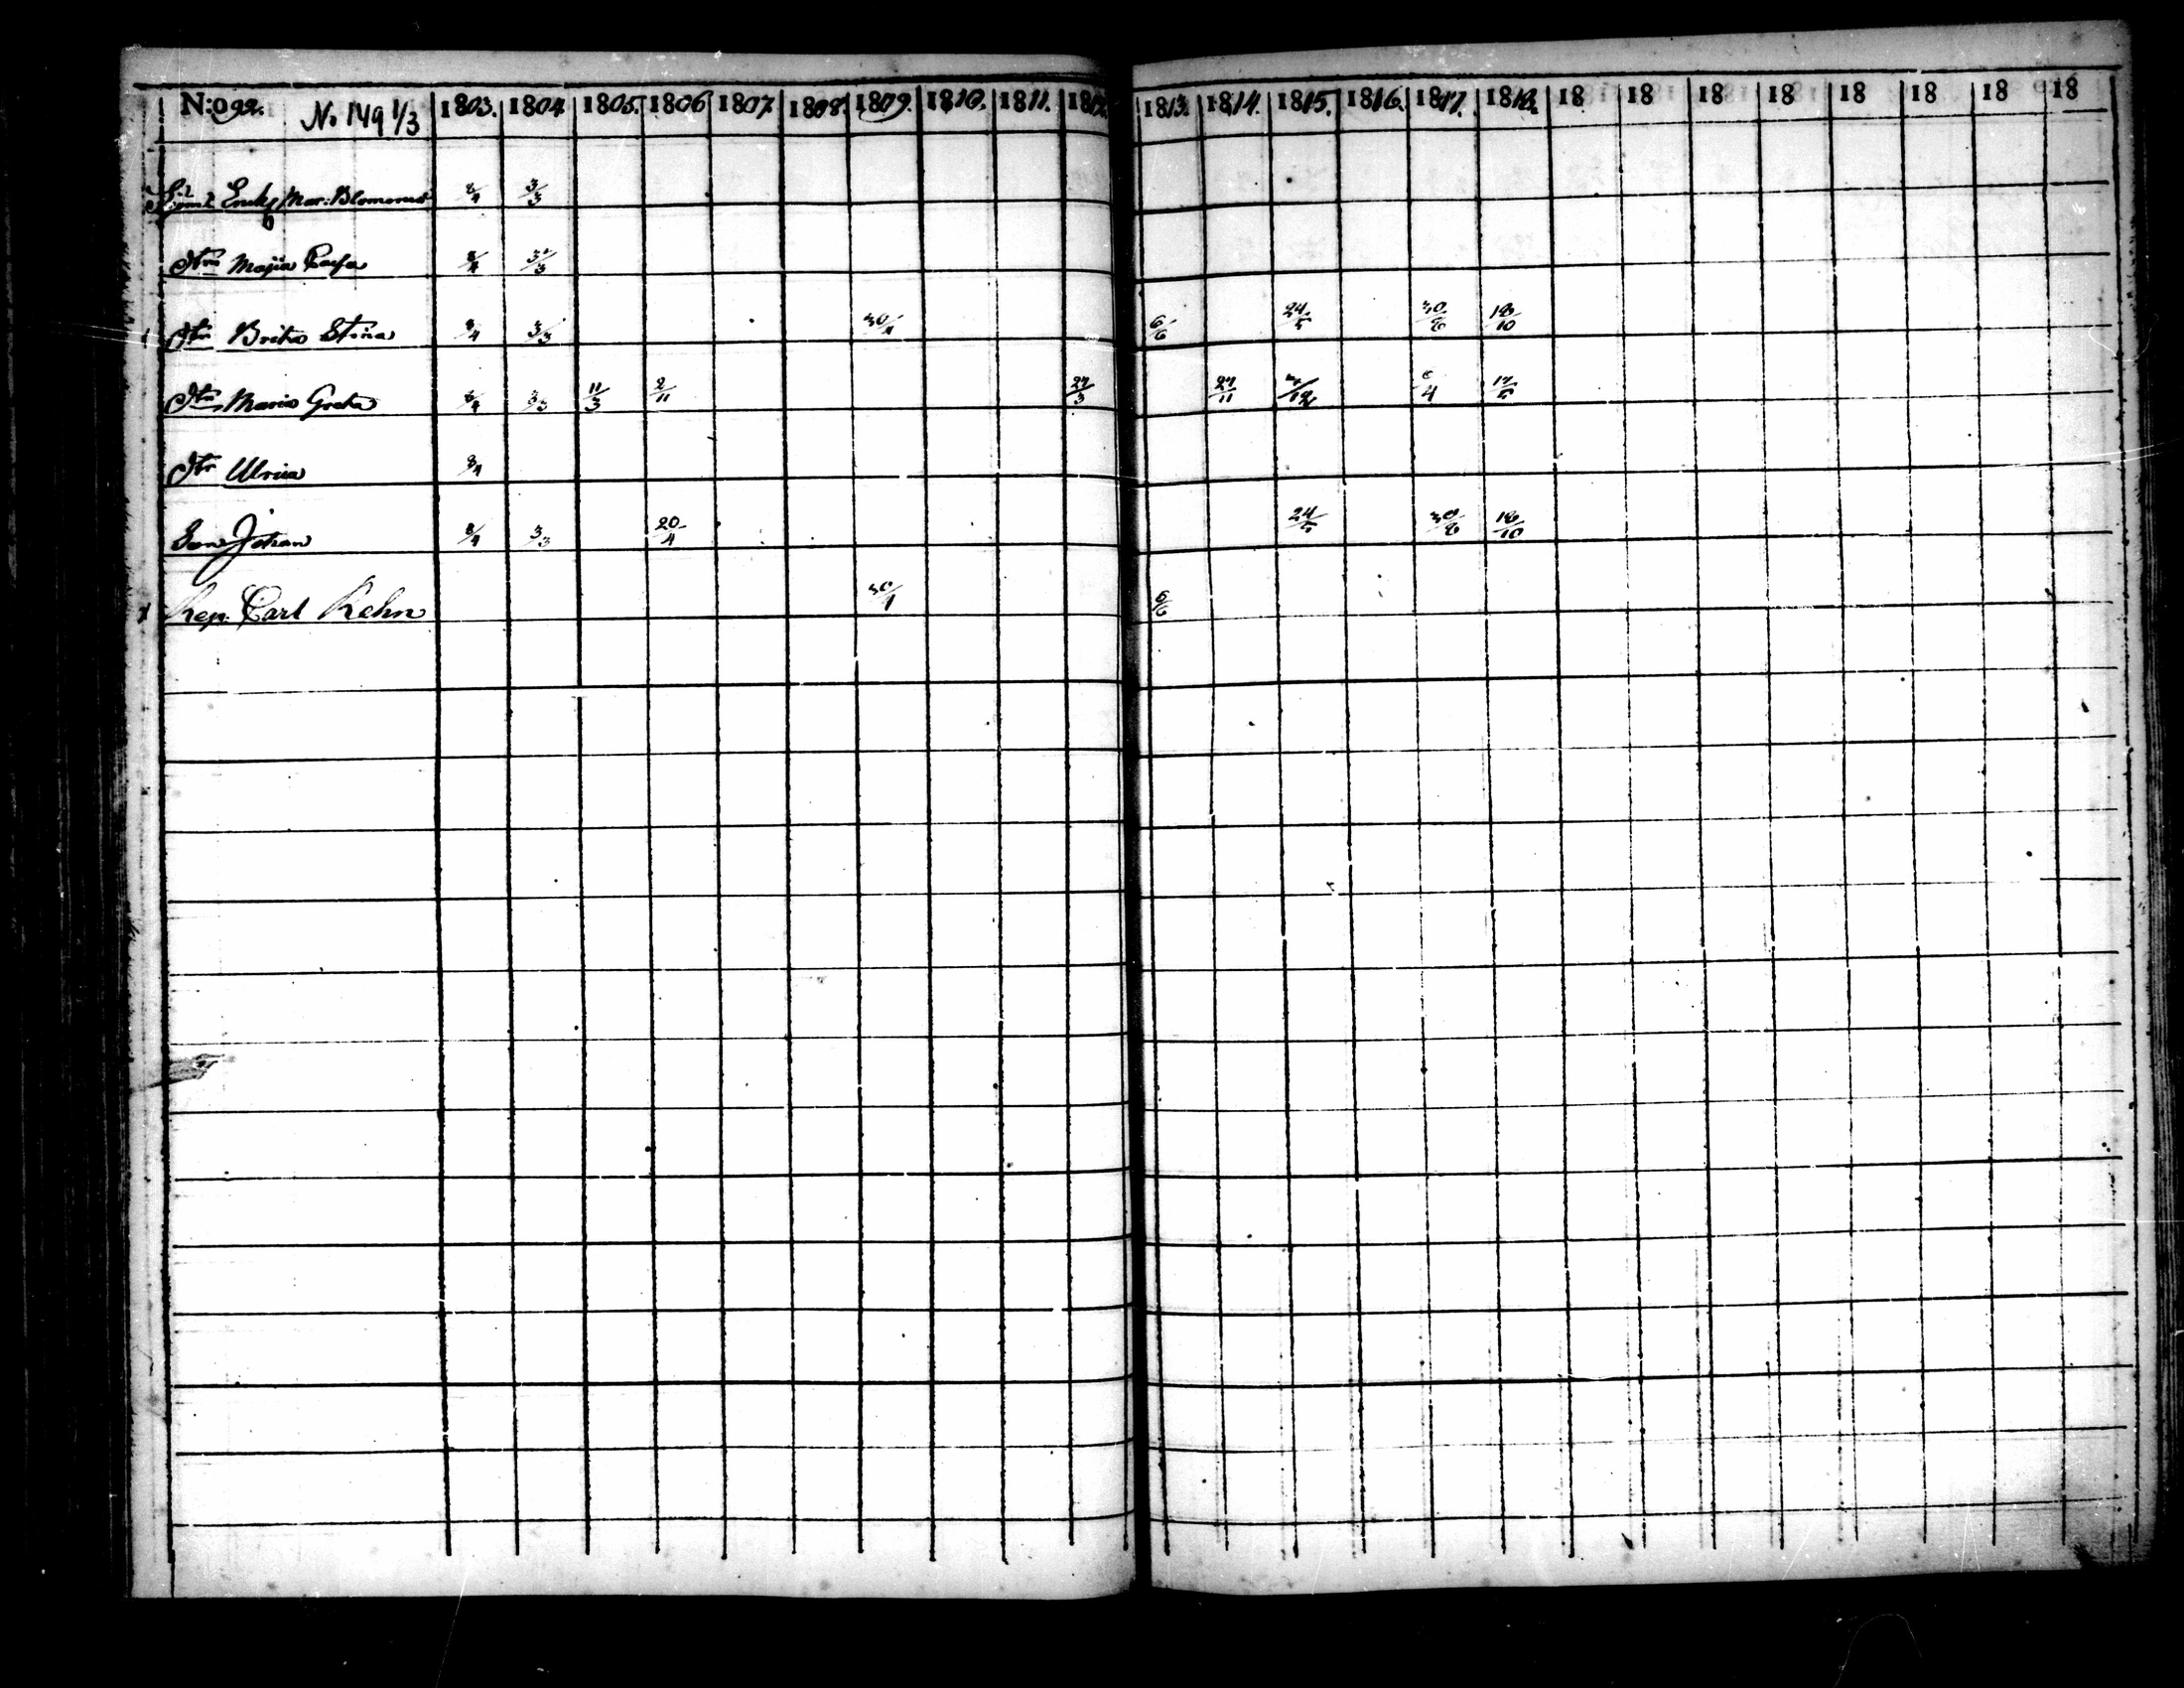 N:o 92. No 149 1/3 1803. 1804 1805. 1806 1807. 1808. 1809. 1810. 1811. 1812. 1813. 1814. 1815. 1816. 1817. 1818. 18 18 18 18 18 18 18 18
Enk Mar: 8/4 3/3
Dtr Maja Caisa 8/4 3/3
Dtr Brita Stina 8/4 3/3 30/4 6/6 24/5 30/6 18/10
Dtr Maria Greta 8/4 3/3 11/3 2/11 27/3 27/11 4 17/5
Dtr Ulrica 8/4
Son Johan 8/4 3/3 20/4 24/5 30/6 18/10
Rep. Carl Rehn 30/4 6/6